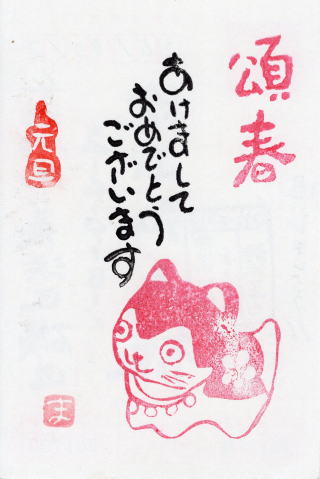 頌春
あけまして
おめでとう
ございます
元旦
ま